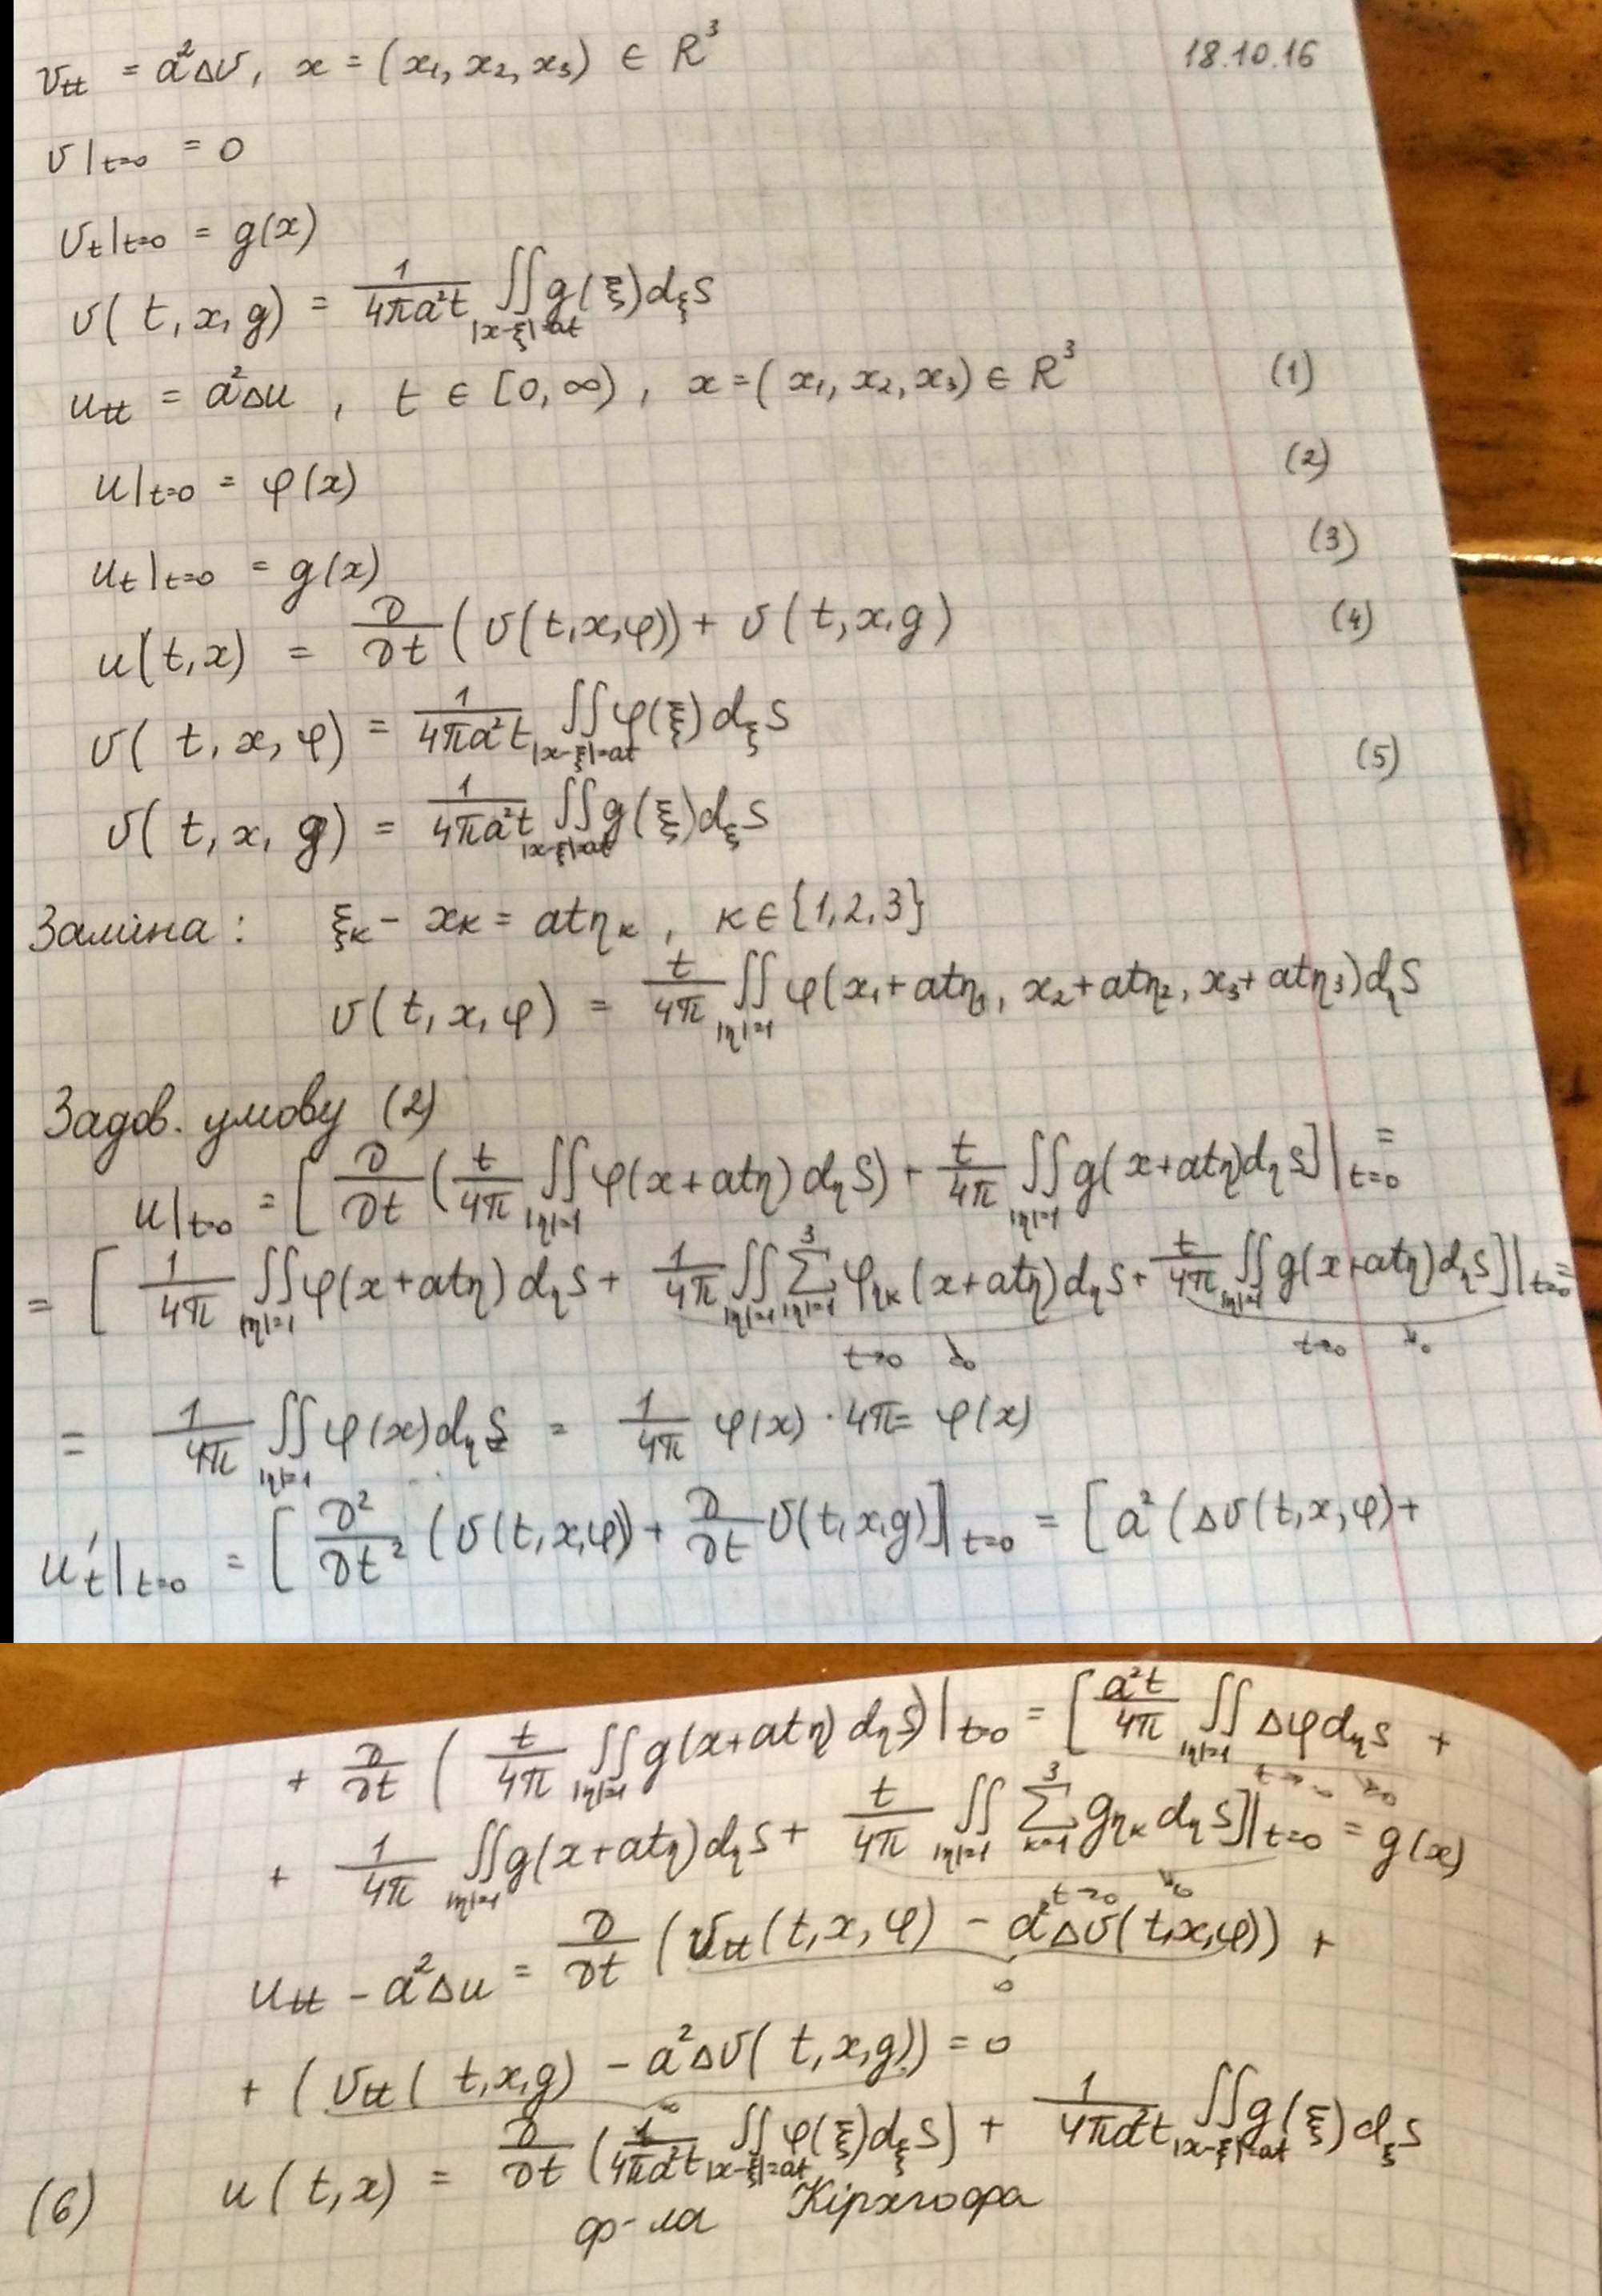 18.10.16
v_tt = a²Δv, x = (x₁, x₂, x₃) ∈ R³
v|_{t=0} = 0
v_t|_{t=0} = g(x)
v(t, x, g) = 1/(4πa²t) ∬_{|x-ξ|=at} g(ξ) d_ξ S
u_tt = a²Δu, t ∈ [0, ∞), x = (x₁, x₂, x₃) ∈ R³ (1)
u|_{t=0} = φ(x) (2)
u_t|_{t=0} = g(x) (3)
u(t, x) = ∂/∂t (v(t, x, φ)) + v(t, x, g) (4)
v(t, x, φ) = 1/(4πa²t) ∬_{|x-ξ|=at} φ(ξ) d_ξ S
(5)
v(t, x, g) = 1/(4πa²t) ∬_{|x-ξ|=at} g(ξ) d_ξ S
Заміна: ξ_к - x_к = atη_к, к ∈ {1, 2, 3}
v(t, x, φ) = t/(4π) ∬_{|η|=1} φ(x₁ + atη₁, x₂ + atη₂, x₃ + atη₃) d_η S
Задов. умову (2)
u|_{t=0} = [∂/∂t (t/(4π) ∬_{|η|=1} φ(x + atη) d_η S) + t/(4π) ∬_{|η|=1} g(x + atη) d_η S]|_{t=0} =
= [1/(4π) ∬_{|η|=1} φ(x + atη) d_η S + 1/(4π) ∬_{|η|=1} Σ_{|η|=1}^{3} φ_{η_к}(x + atη) d_η S + t/(4π) ∬_{|η|=1} g(x + atη) d_η S]|_{t=0} =
t→0 ↘0 t→0 ↘0
= 1/(4π) ∬_{|η|=1} φ(x) d_η S = 1/(4π) φ(x) · 4π = φ(x)
u'_t|_{t=0} = [∂²/∂t² (v(t, x, φ)) + ∂/∂t v(t, x, g)]|_{t=0} = [a² (Δv(t, x, φ) +
+ ∂/∂t (t/(4π) ∬_{|η|=1} g(x + atη) d_η S)|_{t=0} = [a²t/(4π) ∬_{|η|=1} Δφ d_η S +
t→0 ↘0
+ 1/(4π) ∬_{|η|=1} g(x + atη) d_η S + t/(4π) ∬_{|η|=1} Σ_{к=1}^{3} g_{η_к} d_η S]|_{t=0} = g(x)
t→0 ↘0
u_tt - a²Δu = ∂/∂t (v_tt(t, x, φ) - a²Δv(t, x, φ)) +
0
+ (v_tt(t, x, g) - a²Δv(t, x, g)) = 0
0
(6) u(t, x) = ∂/∂t (1/(4πa²t) ∬_{|x-ξ|=at} φ(ξ) d_ξ S) + 1/(4πa²t) ∬_{|x-ξ|=at} g(ξ) d_ξ S
ф-ла Кірхгофа